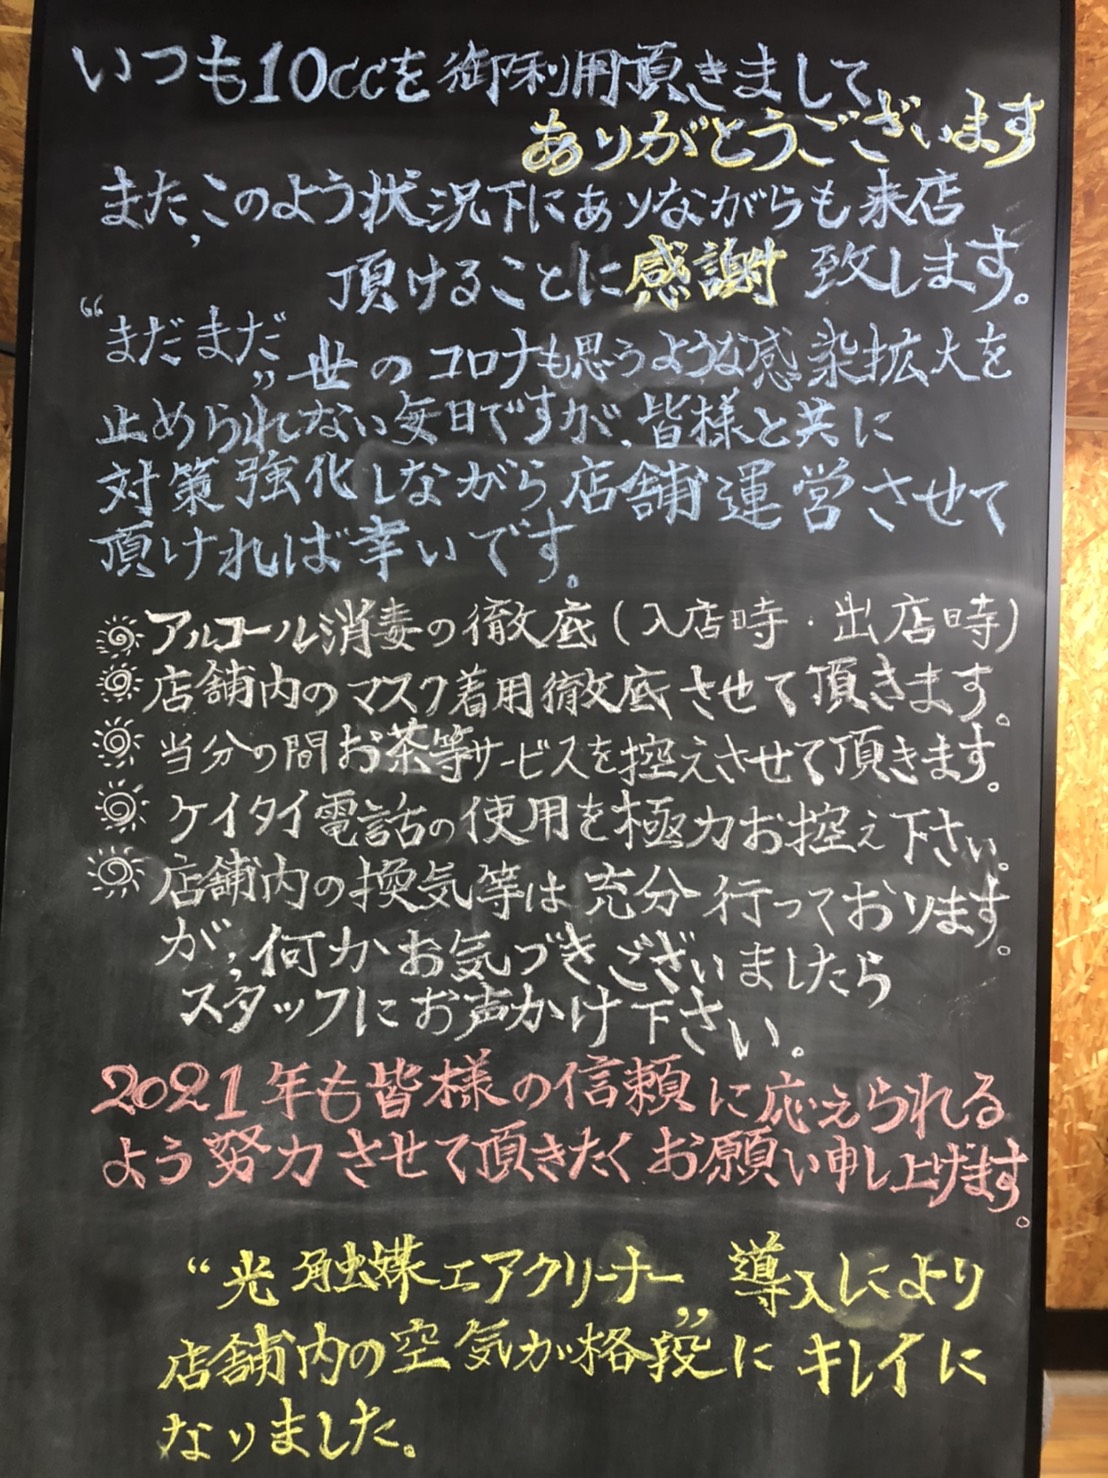 いつも10ccを御利用頂きまして、
ありがとうございます
また、このよう状況下にありながらも来店
頂けることに感謝致します。
“まだまだ”世のコロナも思うような感染拡大を
止められない毎日ですが、皆様と共に
対策強化しながら店舗運営させて
頂ければ幸いです。
アルコール消毒の徹底(入店時・出店時)
店舗内のマスク着用徹底させて頂きます。
当分の間お茶等サービスを控えさせて頂きます。
ケイタイ電話の使用を極力お控え下さい。
店舗内の換気等は充分行っております。
が、何かお気づきございましたら
スタッフにお声かけ下さい。
2021年も皆様の信頼に応えられる
よう努力させて頂きたくお願い申し上げます。
“光触媒エアクリーナー”導入により
店舗内の空気が格段にキレイに
なりました。